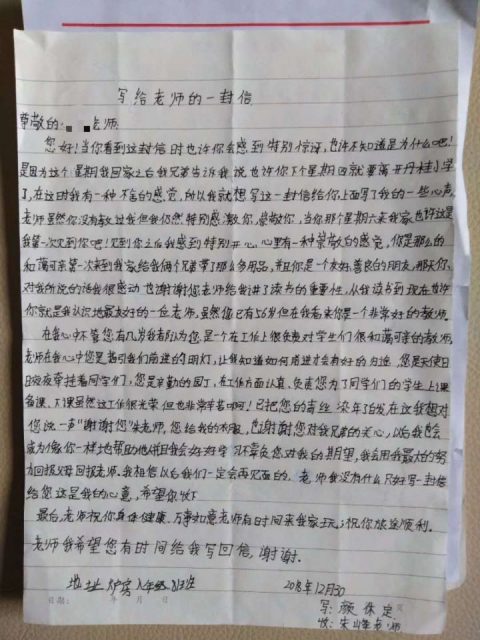 写给老师的一封信
尊敬的: 老师:
您好!当你看到这封信时也许你会感到特别惊讶,也许不知道是为什么吧!
是因为这个星期我回家之后我兄弟告诉我说也许你下个星期四就要离开丹桂小学
了,在这时我有一种不舍的感觉,所以我就想写这一封信给你上面写了我的一些心声,
老师虽然你没有教过我但我仍然特别感激你,崇敬你,当你那个星期六来我家也许这是
我第一次见到你吧!见到你之后我感到特别开心,心里有一种崇敬的感觉,你是那么的
和蔼可亲第一次来到我家给我俩个兄弟带了那么多用品,并且你是一个友好善良的朋友,那天你
对我所说的话我很感动也谢谢您老师给我讲了读书的重要性,从我读书到现在也许
你就是我认识地最友好的一位老师,虽然您已有56岁但在我看来你是一个非常好的教师,
在我心中不管您有几岁我都认为您是一个在工作上很负责对学生们很和蔼可亲的教师,
老师在我心中您是着引我们前进的明灯,让我知道如何前进才会有好的前途,您是天使日
日夜夜牵挂着同学们,您是辛勤的园丁,在工作方面认真、负责您为了同学们的学生上课
备课、下课虽然这工作很光荣但也非常辛苦啊!已把您的青丝染成了白发在这我想对
您说一声"谢谢您"朱老师,您给我的衣服,也谢谢您对我兄弟的关心,以后我也会
成为像你一样地帮助他人并且我会好好学习不辜负您对我的期望,我会用我最大的努
力回报父母回报老师,我相信以后我们一定会再见面的,老师我没有什么只好写一封信
给您这是我的心意,希望你收下
最后,老师祝你身体健康、万事如意老师有时间来我家玩,祝你旅途顺利。
老师我希望您有时间给我写回信,谢谢。
地址:炉房八年级 班 2018年12月30
日期: 年 月 日
写:颜保定
收:朱峰老师